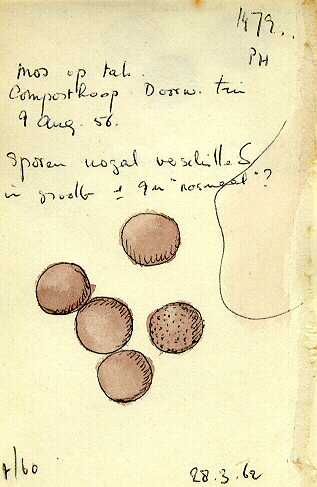 1479.
PH
Mos op tak.
Composthoop Doorw. tuin
9 Aug. 56.
Sporen nogal verschillend
in grootte ± 9 µ "normaal"?
/60
28.3.62